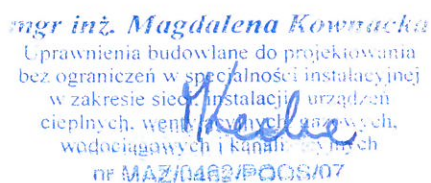 mgr inż. Magdalena Kownacka
Uprawnienia budowlane do projektowania
bez ograniczeń w specjalności instalacyjnej
w zakresie sieci, instalacji i urządzeń
cieplnych, wentylacyjnych, gazowych,
wodociągowych i kanalizacyjnych
nr MAZ/0462/POOS/07